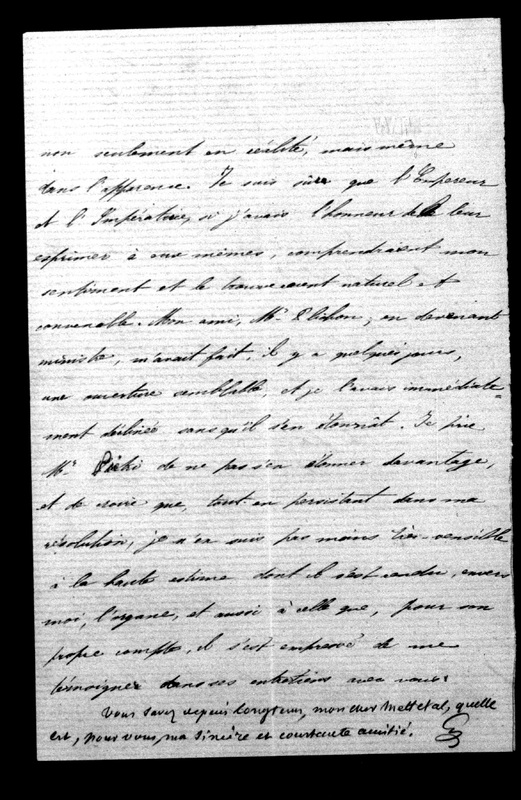 non seulement en réalité, mais même
dans l'apparence. Je suis sûr que l'Empereur
et l'Impératrice, si j'avais l'honneur de le leur
exprimer à eux mêmes, comprendraient mon
sentiment et le trouveraient naturel et
convenable. Mon ami, Mr. Plichon, en devenant
ministre, m'avait fait, il y a quelques jours,
une ouverture semblable, et je l'avais immédiate=
ment déclinée sans qu'il s'en étonnât. Je prie
Mr de ne pas s'en étonner davantage,
et de croire que, tout en persistant dans ma
résolution, je n'en suis pas moins très-sensible
à la haute estime dont il s'est rendu, envers
moi, l'organe, et aussi à celle que, pour son
propre compte, il s'est empressé de me
témoigner dans ses entretiens avec vous.
Vous savez depuis longtems, mon cher Mettetal, quelle
est, pour vous, ma sincère et constante amitié.